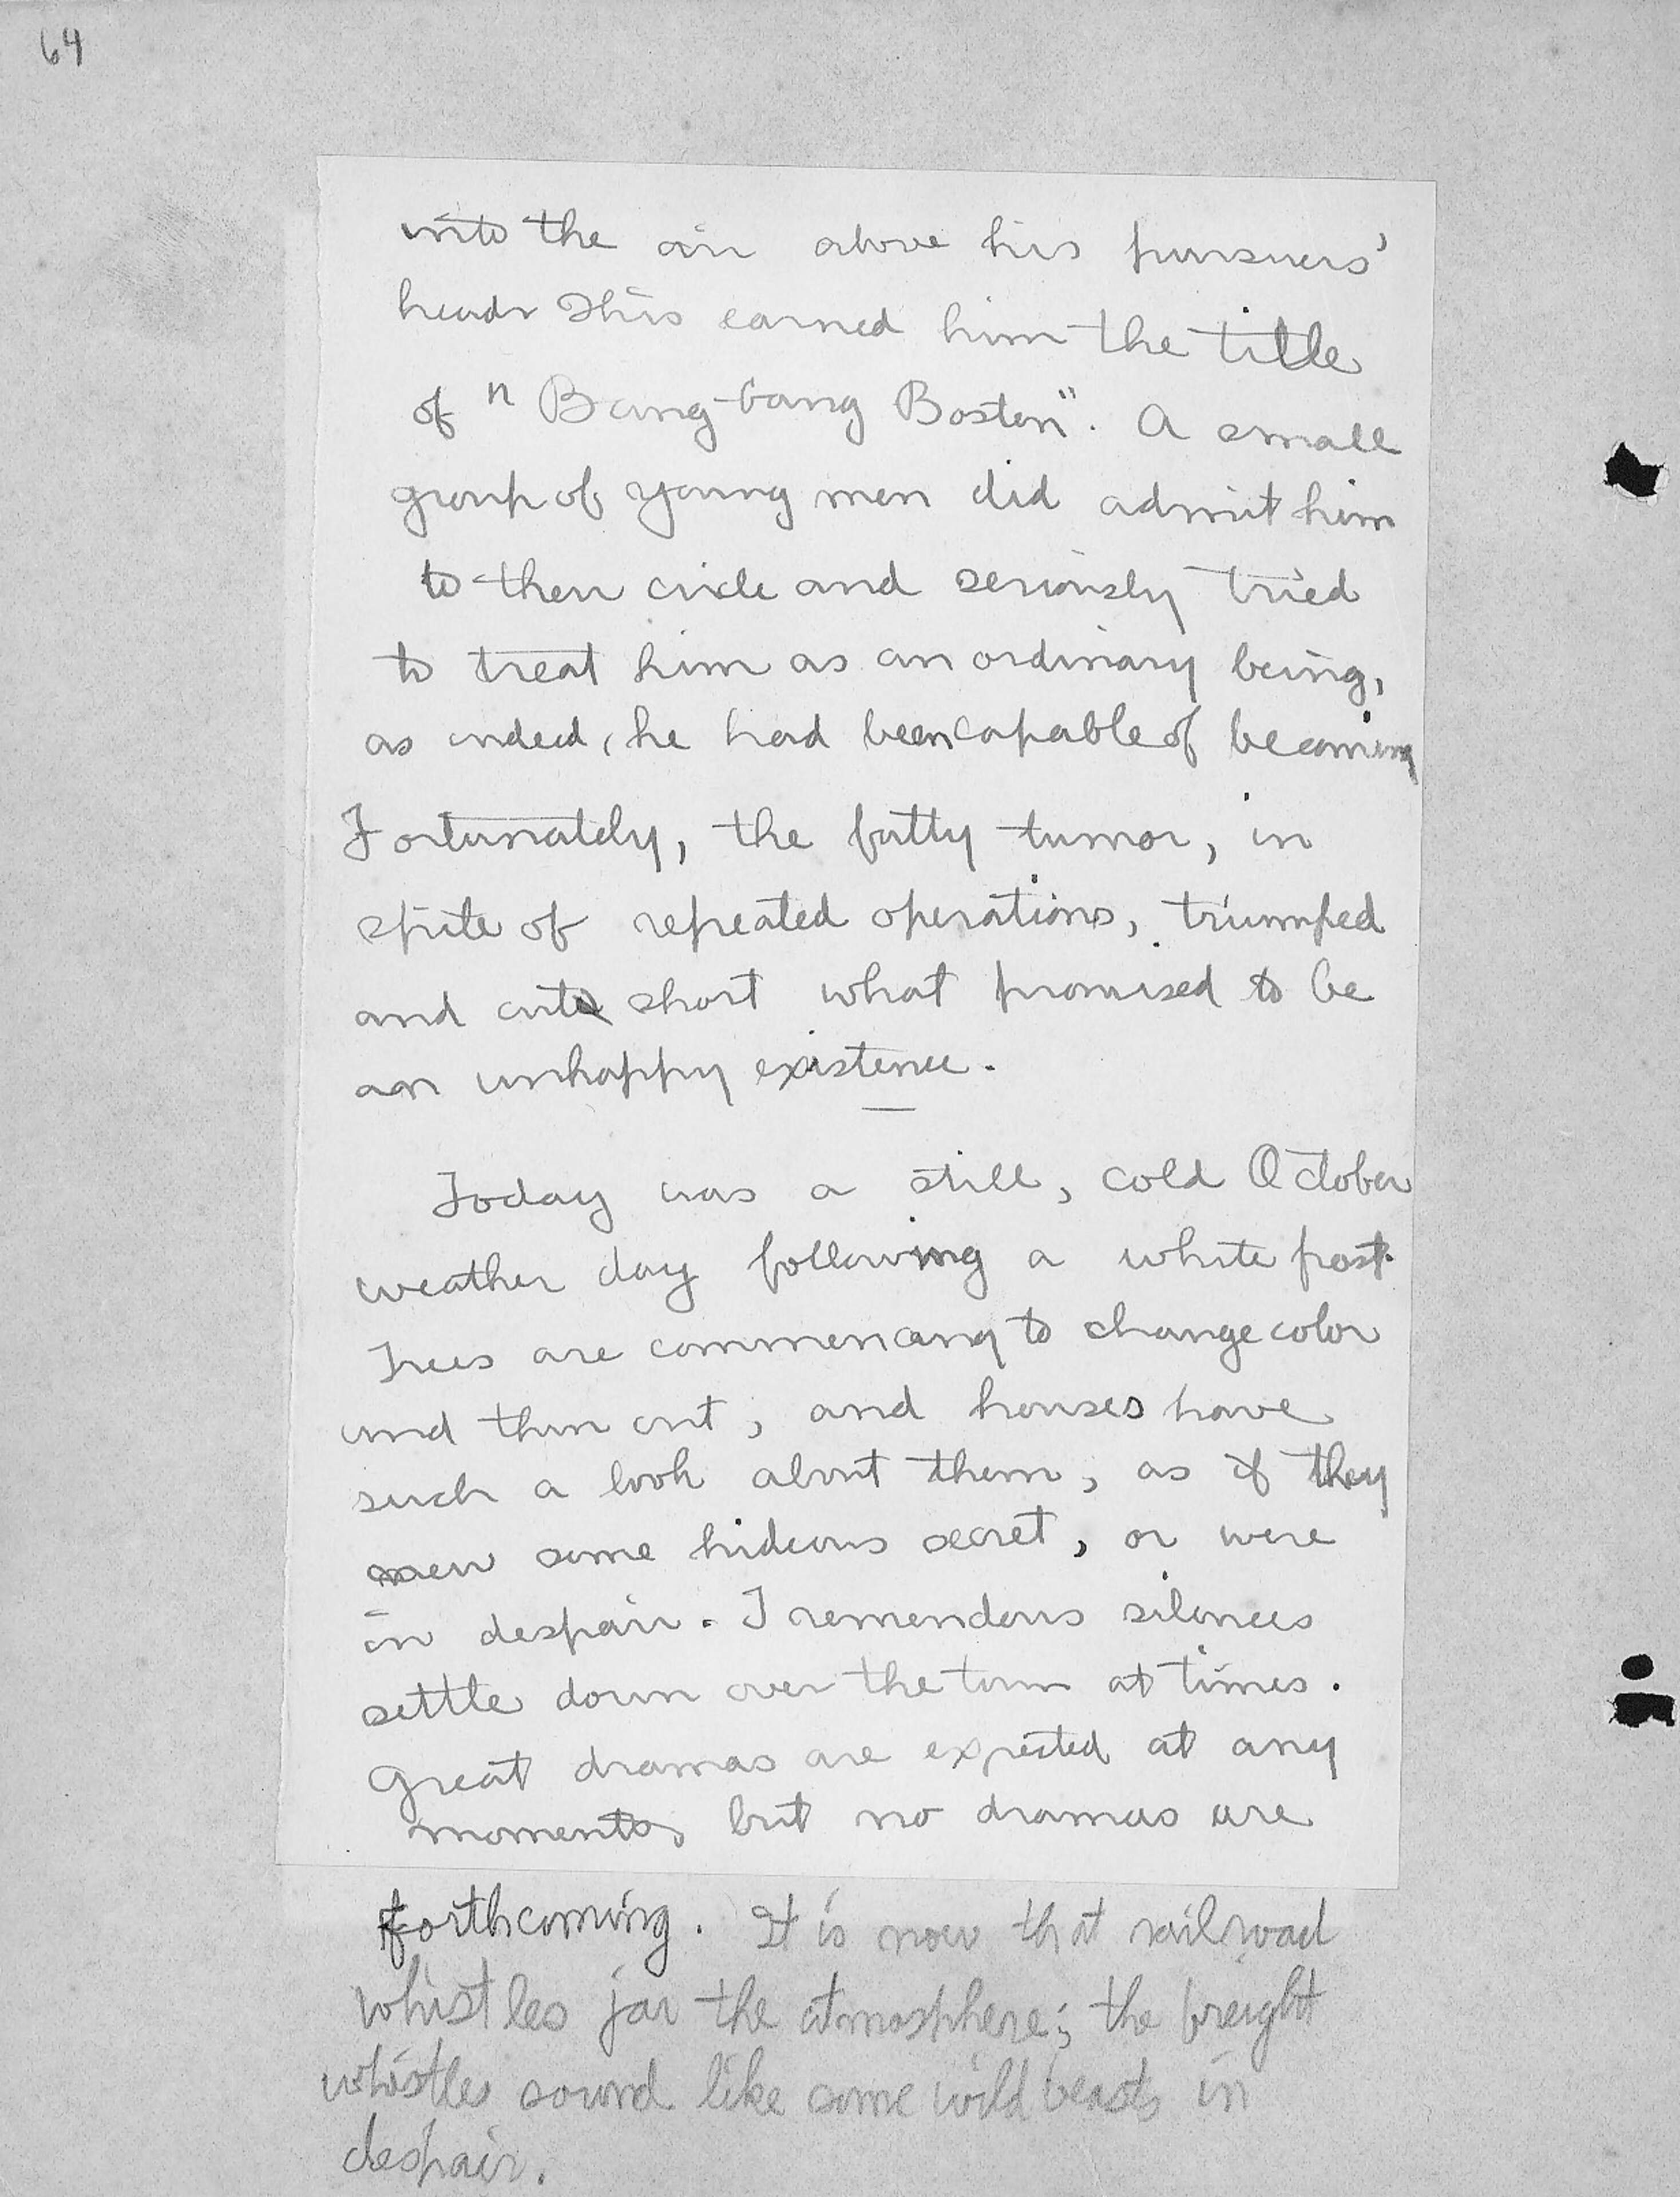 64
into the air above his pursuers'
heads This earned him the title
of "Bang-bang Boston". A small
group of young men did admit him
to their circle and seriously tried
to treat him as an ordinary being,
as indeed, he had been capable of becoming
Fortunately, the fatty tumor, in
spite of repeated operations, triumped
and cut short what promised to be
an unhappy existence.
Today was a still, cold October
weather day following a white frost.
Trees are commencing to change color
and thin out, and houses have
such a look about them, as if they
knew some hideous secret, or were
in despair. Tremendous silences
settle down over the town at times.
Great dramas are expected at any
moment, but no dramas are
forthcoming. It is now that railroad
whistles jar the atmosphere; the freight
whistles sound like some wild beasts in
despair.